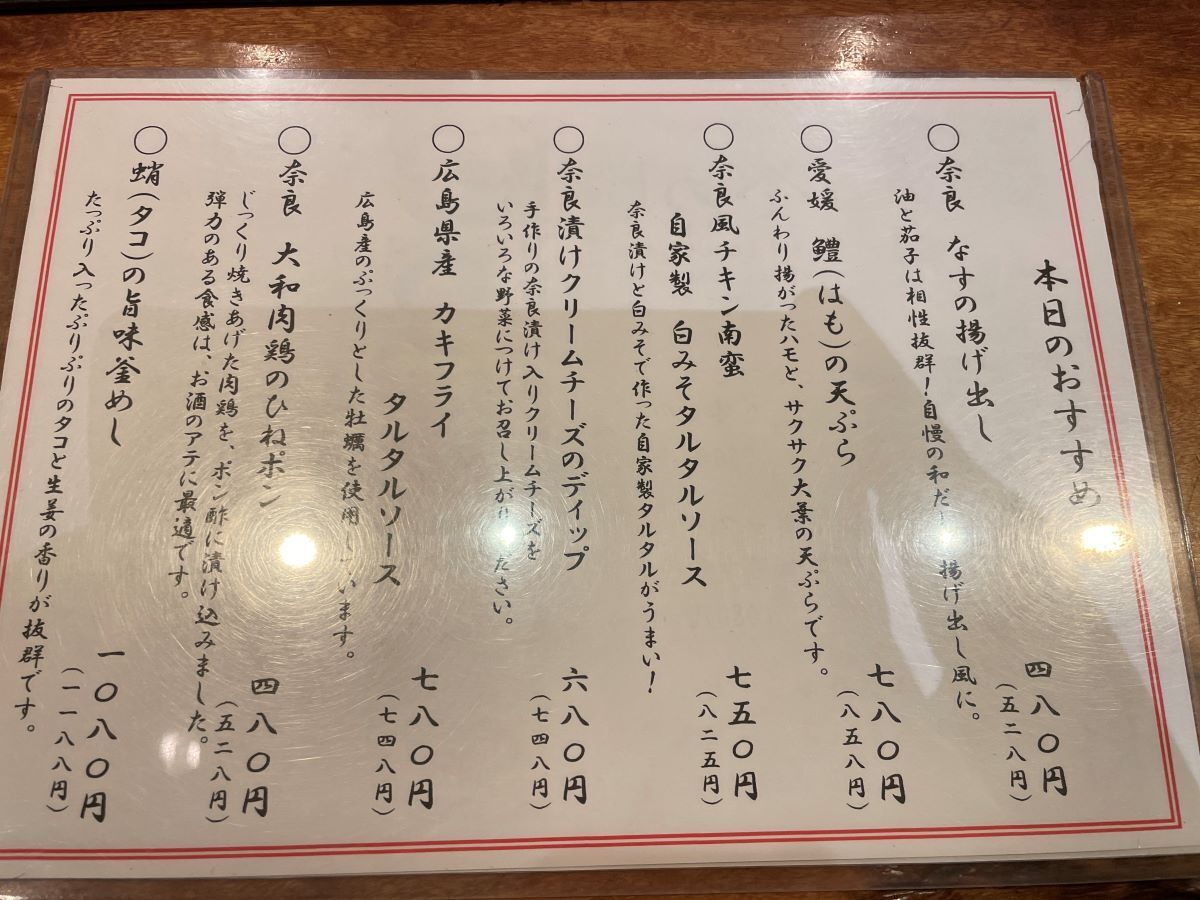 本日のおすすめ
○奈良 なすの揚げ出し
油と茄子は相性抜群!自慢の和だ 揚げ出し風に。
四八〇円
(五二八円)
○愛媛 鱧(はも)の天ぷら
ふんわり揚がったハモと、サクサク大葉の天ぷらです。
七八〇円
(八五八円)
○奈良風チキン南蛮
自家製 白みそタルタルソース
奈良漬けと白みそで作った自家製タルタルがうまい!
七五〇円
(八二五円)
○奈良漬けクリームチーズのディップ
手作りの奈良漬け入りクリームチーズを
いろいろな野菜につけてお召し上がり ださい。
六八〇円
(七四八円)
○広島県産 カキフライ
タルタルソース
広島産のぷっくりとした牡蠣を使用 ています。
七八〇円
(七四八円)
○奈良 大和肉鶏のひねポン
じっくり焼きあげた肉鶏を、ポン酢に漬け込みました。
弾力のある食感は、お酒のアテに最適です。
四八〇円
(五二八円)
○蛸(タコ)の旨味釜めし
たっぷり入ったぷりぷりのタコと生姜の香りが抜群です。
一〇八〇円
(一一八八円)